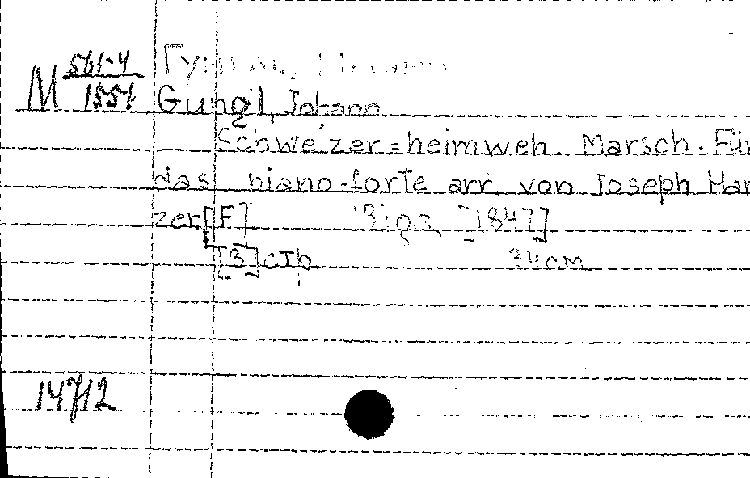 М 561-4
1551
Gungl, Johann
Schweizer=heimweh. Marsch. Für
das piano-forte arr. von Joseph Har
zer [F] Riga, [1847]
[3] стр 34 cm
14712